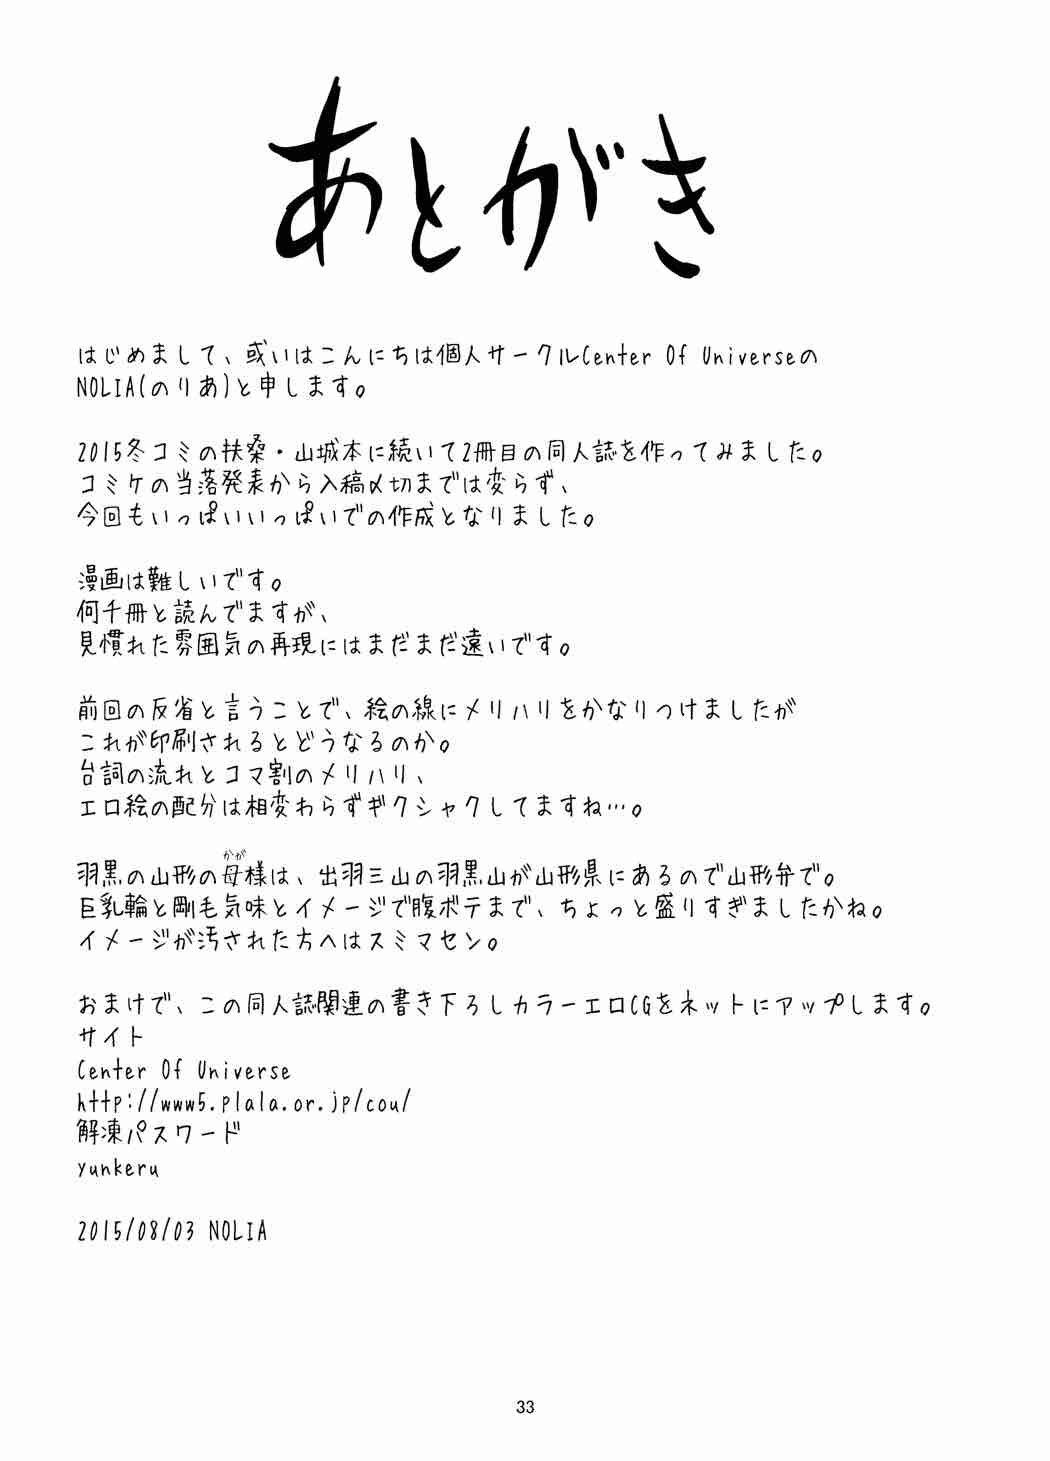 あとがき
はじめまして、或いはこんにちは個人サークルCenter Of Universeの
NOLIA(のりあ)と申します。
2015冬コミの扶桑・山城本に続いて2冊目の同人誌を作ってみました。
コミケの当落発表から入稿〆切までは変らず、
今回もいっぱいいっぱいでの作成となりました。
漫画は難しいです。
何千冊と読んでますが、
見慣れた雰囲気の再現にはまだまだ遠いです。
前回の反省と言うことで、絵の線にメリハリをかなりつけましたが
これが印刷されるとどうなるのか。
台詞の流れとコマ割のメリハリ、
エロ絵の配分は相変わらずギクシャクしてますね…。
かが
羽黒の山形の母様は、出羽三山の羽黒山が山形県にあるので山形弁で。
巨乳輪と剛毛気味とイメージで腹ボテまで、ちょっと盛りすぎましたかね。
イメージが汚された方へはスミマセン。
おまけで、この同人誌関連の書き下ろしカラーエロCGをネットにアップします。
サイト
Center Of Universe
http://www5.plala.or.jp/cou/
解凍パスワード
yunkeru
2015/08/03 NOLIA
33